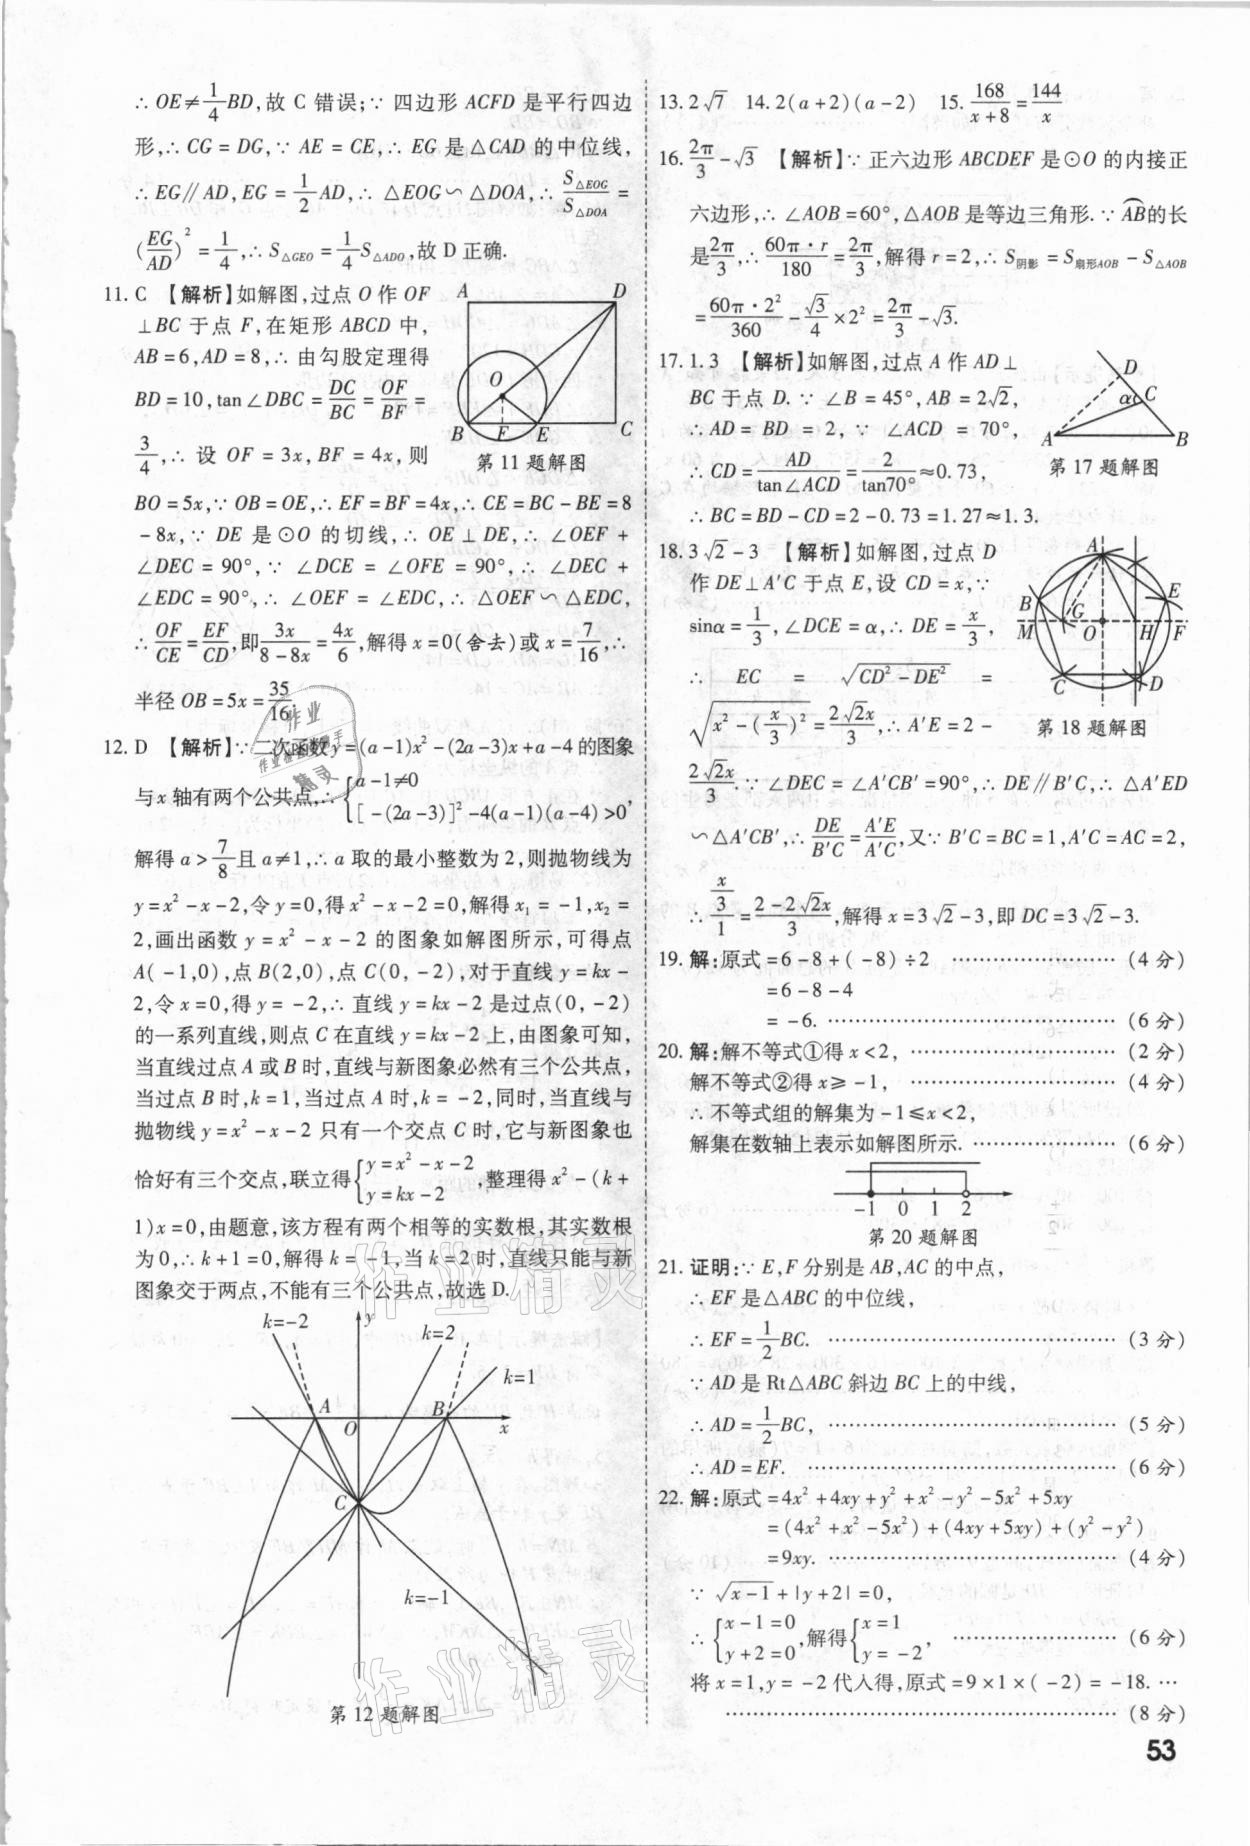 ∴ OE≠1/4BD,故 C 错误;∵ 四边形 ACFD 是平行四边
形,∴ CG = DG,∵ AE = CE,∴ EG 是△CAD 的中位线,
∴ EG∥AD,EG = 1/2AD,∴ △EOG∽△DOA,∴ S△EOG/S△DOA =
(EG/AD)² = 1/4,∴ S△GEO = 1/4S△ADO,故 D 正确.
11. C 【解析】如解图,过点 O 作 OF
⊥BC 于点 F,在矩形 ABCD 中,
AB=6,AD=8,∴ 由勾股定理得
BD = 10,tan∠DBC = DC/BC = OF/BF =
3/4,∴ 设 OF = 3x,BF = 4x,则
A D O B F E C
第 11 题解图
BO=5x,∵ OB=OE,∴ EF=BF=4x,∴ CE=BC-BE=8
-8x,∵ DE 是⊙O 的切线,∴ OE⊥DE,∴ ∠OEF+
∠DEC = 90°,∵ ∠DCE = ∠OFE = 90°,∴ ∠DEC +
∠EDC=90°,∴ ∠OEF=∠EDC,∴ △OEF∽△EDC,
∴ OF/CE = EF/CD,即3x/(8-8x) = 4x/6,解得 x=0(舍去)或 x=7/16,∴
半径 OB=5x=35/16.
12. D 【解析】∵二次函数 y=(a-1)x²-(2a-3)x+a-4 的图象
与 x 轴有两个公共点,∴ {a-1≠0
[-(2a-3)]²-4(a-1)(a-4)>0,
解得 a>7/8且 a≠1,∴ a 取的最小整数为 2,则抛物线为
y=x²-x-2,令 y=0,得 x²-x-2=0,解得 x₁=-1,x₂=
2,画出函数 y=x²-x-2 的图象如解图所示,可得点
A(-1,0),点 B(2,0),点 C(0,-2),对于直线 y=kx-
2,令 x=0,得 y=-2,∴ 直线 y=kx-2 是过点(0,-2)
的一系列直线,则点 C 在直线 y=kx-2 上,由图象可知,
当直线过点 A 或 B 时,直线与新图象必然有三个公共点,
当过点 B 时,k=1,当过点 A 时,k=-2,同时,当直线与
抛物线 y=x²-x-2 只有一个交点 C 时,它与新图象也
恰好有三个交点,联立得{y=x²-x-2
y=kx-2,整理得 x²-(k+
1)x=0,由题意,该方程有两个相等的实数根,其实数根
为 0,∴ k+1=0,解得 k=-1,当 k=2 时,直线只能与新
图象交于两点,不能有三个公共点,故选 D.
k=-2 y k=2
k=1
A O B x
C
k=-1
第 12 题解图
13. 2√7 14. 2(a+2)(a-2) 15. 168/(x+8) = 144/x
16. 2π/3-√3 【解析】∵ 正六边形 ABCDEF 是⊙O 的内接正
六边形,∴ ∠AOB=60°,△AOB 是等边三角形.∵ AB⌒的长
是2π/3,∴ 60π·r/180 = 2π/3,解得 r=2,∴ S阴影 = S扇形AOB - S△AOB
= 60π·2²/360 - √3/4×2² = 2π/3-√3.
17. 1.3 【解析】如解图,过点 A 作 AD⊥
BC 于点 D.∵ ∠B=45°,AB=2√2,
∴ AD = BD = 2,∵ ∠ACD = 70°,
∴ CD = AD/tan∠ACD = 2/tan70°≈0.73,
∴ BC=BD-CD=2-0.73=1.27≈1.3.
D C α A B
第 17 题解图
18. 3√2-3 【解析】如解图,过点 D
作 DE⊥A′C 于点 E,设 CD=x,∵
sinα=1/3,∠DCE=α,∴ DE=x/3,
∴ EC = √(CD²-DE²) =
√(x²-(x/3)²) = 2√2x/3,∴ A′E = 2-
A B E G M O H F C D
第 18 题解图
2√2x/3.∵ ∠DEC=∠A′CB′=90°,∴ DE∥B′C,∴ △A′ED
∽△A′CB′,∴ DE/B′C = A′E/A′C,又∵ B′C=BC=1,A′C=AC=2,
∴ (x/3)/1 = (2-2√2x)/3,解得 x=3√2-3,即 DC=3√2-3.
19. 解:原式=6-8+(-8)÷2 …………………… (4 分)
=6-8-4
=-6. …………………… (6 分)
20. 解:解不等式①得 x<2, …………………… (2 分)
解不等式②得 x≥-1, …………………… (4 分)
∴ 不等式组的解集为-1≤x<2,
解集在数轴上表示如解图所示. …………… (6 分)
-1 0 1 2
第 20 题解图
21. 证明:∵ E,F 分别是 AB,AC 的中点,
∴ EF 是△ABC 的中位线,
∴ EF=1/2BC. …………………… (3 分)
∵ AD 是 Rt△ABC 斜边 BC 上的中线,
∴ AD=1/2BC, …………………… (5 分)
∴ AD=EF. …………………… (6 分)
22. 解:原式=4x²+4xy+y²+x²-y²-5x²+5xy
=(4x²+x²-5x²)+(4xy+5xy)+(y²-y²)
=9xy. …………………… (4 分)
∵ √(x-1)+|y+2|=0,
∴ {x-1=0
y+2=0,解得{x=1
y=-2, …………………… (6 分)
将 x=1,y=-2 代入得,原式=9×1×(-2)=-18. …
…………………… (8 分)
53
作业精灵
作业精灵